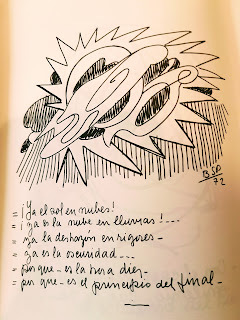 B SP
72
= ¡Ya el sol en nubes!
= ¡ya es la nube en lluvias! ---
= ya la desazón en rigores -
= ya es la oscuridad ---
= porque - es la hora diez -
= por que - es el principio del final -